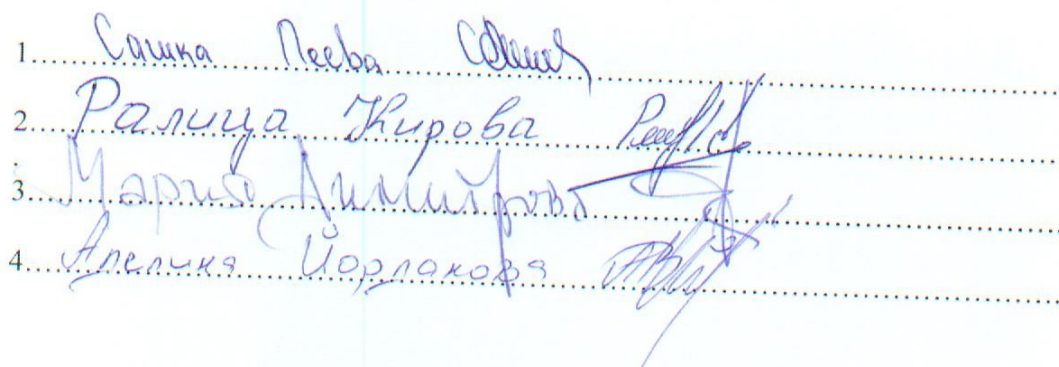 1. Сашка Пеева
2. Ралица Кирова
3. Мария Димитрова
4. Йорданова